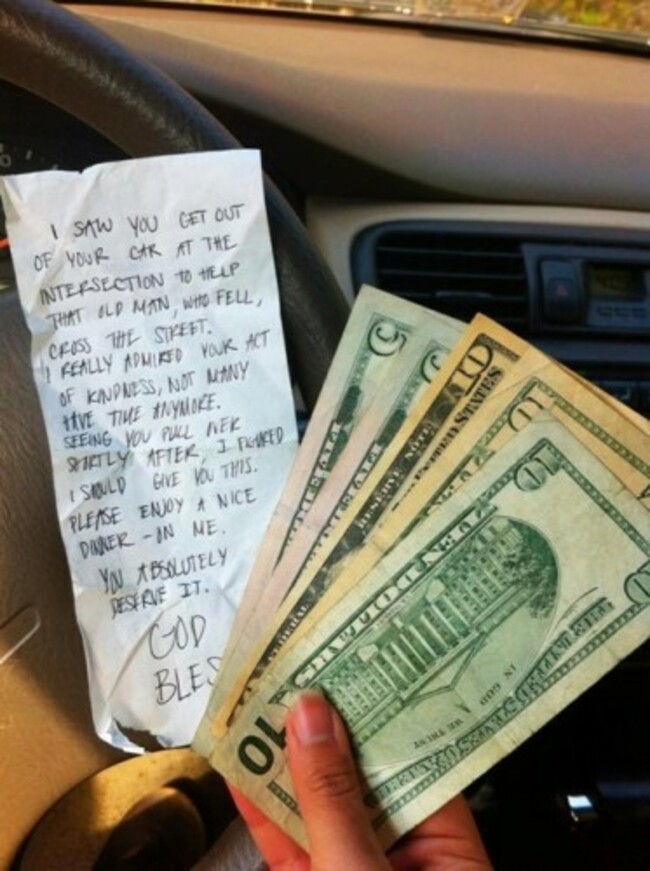 I SAW YOU GET OUT
OF YOUR CAR AT THE
INTERSECTION TO HELP
THAT OLD MAN, WHO FELL,
CROSS THE STREET.
I REALLY ADMIRED YOUR ACT
OF KINDNESS, NOT MANY
HAVE TIME ANYMORE.
SEEING YOU PULL OVER
SHORTLY AFTER, I FIGURED
I SHOULD GIVE YOU THIS.
PLEASE ENJOY A NICE
DINNER - ON ME.
YOU ABSOLUTELY
DESERVE IT.
GOD
BLES
10
STATES
FEDERAL RESERVE NOTE
10
IN GOD WE TRUST
10